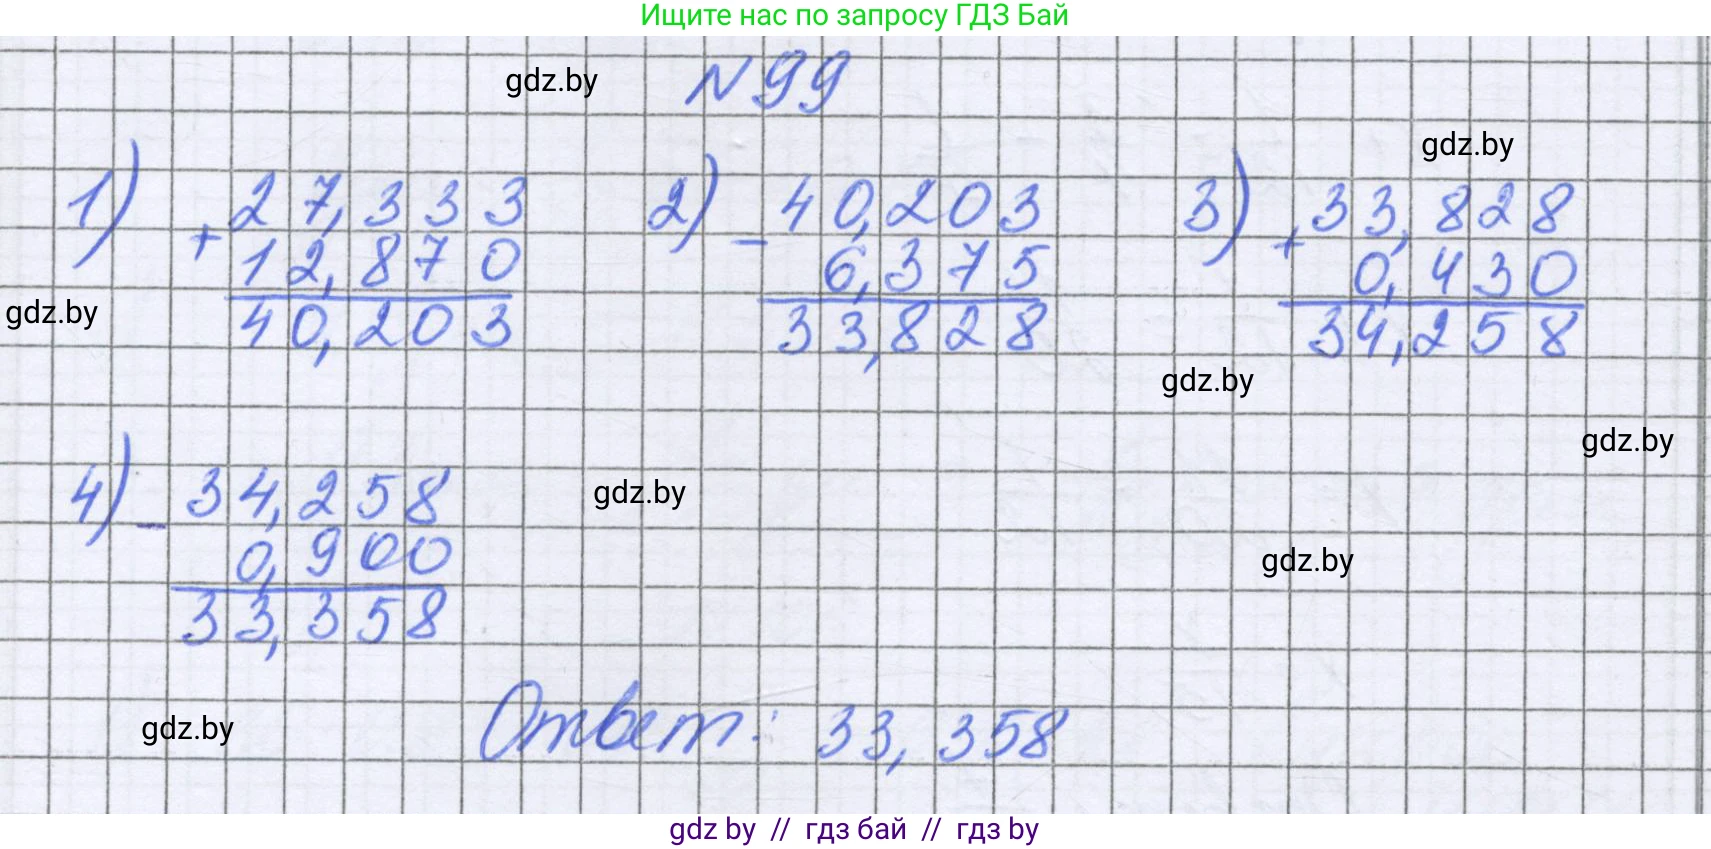 Ищите нас по запросу ГДЗ Бай
gdz.by
N 99
gdz.by
1) + 27,333
12,870
40,203
2) - 40,203
6,375
33,828
3) + 33,828
0,430
34,258
gdz.by
gdz.by
gdz.by
4) - 34,258
0,900
33,358
gdz.by
gdz.by
Ответ: 33,358
gdz.by
gdz by // гдз бай // гдз by